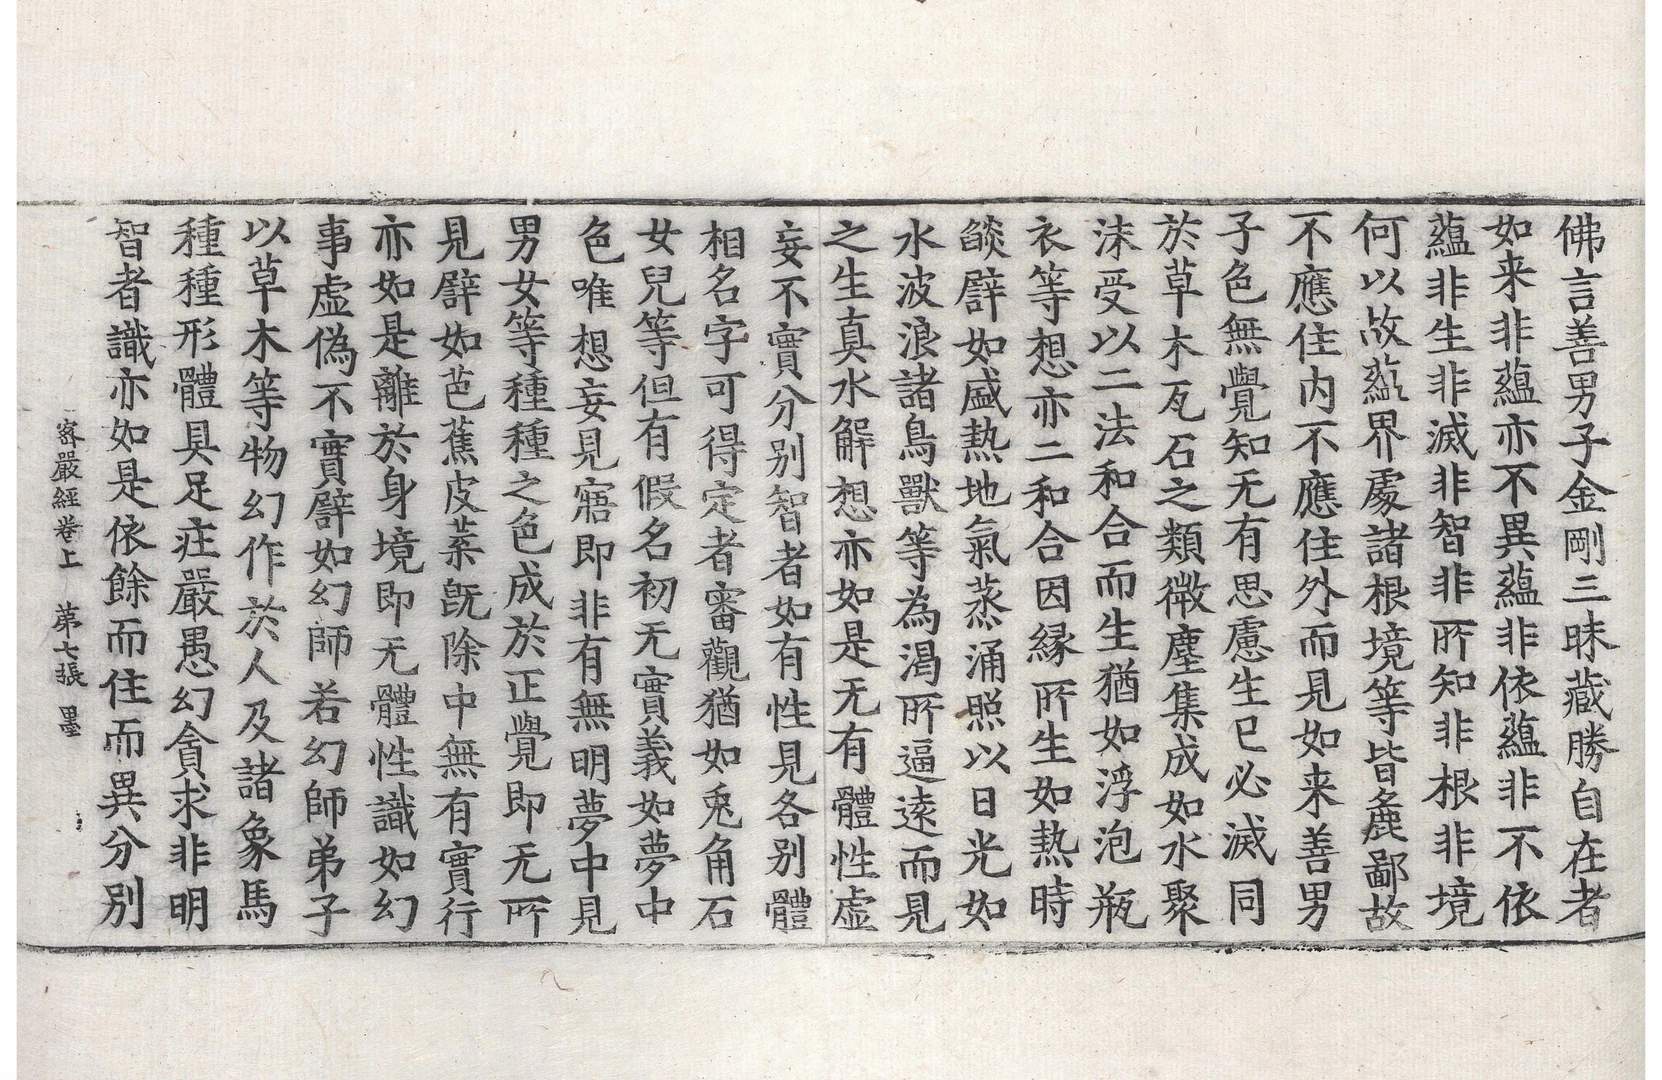 佛言善男子金剛三昧藏勝自在者
如来非蘊亦不異蘊非依蘊非不依
蘊非生非滅非智非所知非根非境
何以故蘊界處諸根境等皆麁鄙故
不應住内不應住外而見如来善男
子色無覺知无有思慮生已必滅同
於草木瓦石之類微塵集成如水聚
沫受以二法和合而生猶如浮泡瓶
衣等想亦二和合因縁所生如熱時
燄譬如盛熱地氣蒸涌照以日光如
水波浪諸鳥獸等為渴所逼遠而見
之生真水解想亦如是无有體性虚
妄不實分別智者如有性見各別體
相名字可得定者審觀猶如兎角石
女兒等但有假名初无實義如夢中
色唯想妄見寤即非有無明夢中見
男女等種種之色成於正覺即无所
見譬如芭蕉皮葉旣除中無有實行
亦如是離於身境即无體性識如幻
事虚偽不實譬如幻師若幻師弟子
以草木等物幻作於人及諸象馬
種種形體具足疰嚴愚幻貪求非明
智者識亦如是依餘而住而異分別
密嚴經卷上 第七張 墨